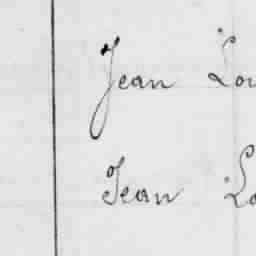 Jean Lou
Jean Lo